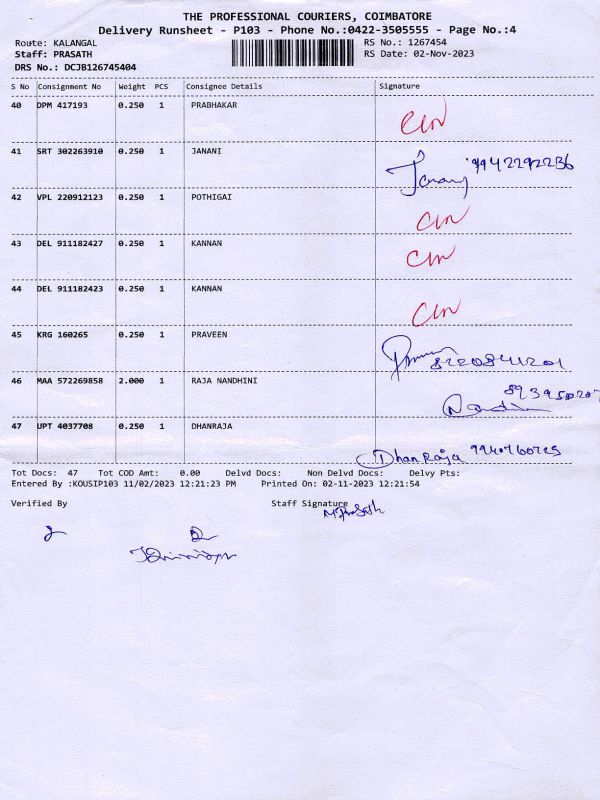 THE PROFESSIONAL COURIERS, COIMBATORE
Delivery Runsheet - P103 - Phone No.:0422-3505555 - Page No.:4
Route: KALANGAL RS No.: 1267454
Staff: PRASATH RS Date: 02-Nov-2023
DRS No.: DCJB126745404
S No Consignment No Weight PCS Consignee Details Signature
40 DPM 417193 0.250 1 PRABHAKAR
41 SRT 302263910 0.250 1 JANANI 9942292236
42 VPL 220912123 0.250 1 POTHIGAI
43 DEL 911182427 0.250 1 KANNAN
44 DEL 911182423 0.250 1 KANNAN
45 KRG 160265 0.250 1 PRAVEEN
46 MAA 572269858 2.000 1 RAJA NANDHINI
47 UPT 4037708 0.250 1 DHANRAJA
Dhan Raja
Tot Docs: 47 Tot COD Amt: 0.00 Delvd Docs: Non Delvd Docs: Delvy Pts:
Entered By :KOUSIP103 11/02/2023 12:21:23 PM Printed On: 02-11-2023 12:21:54
Verified By Staff Signature
M.Prasath